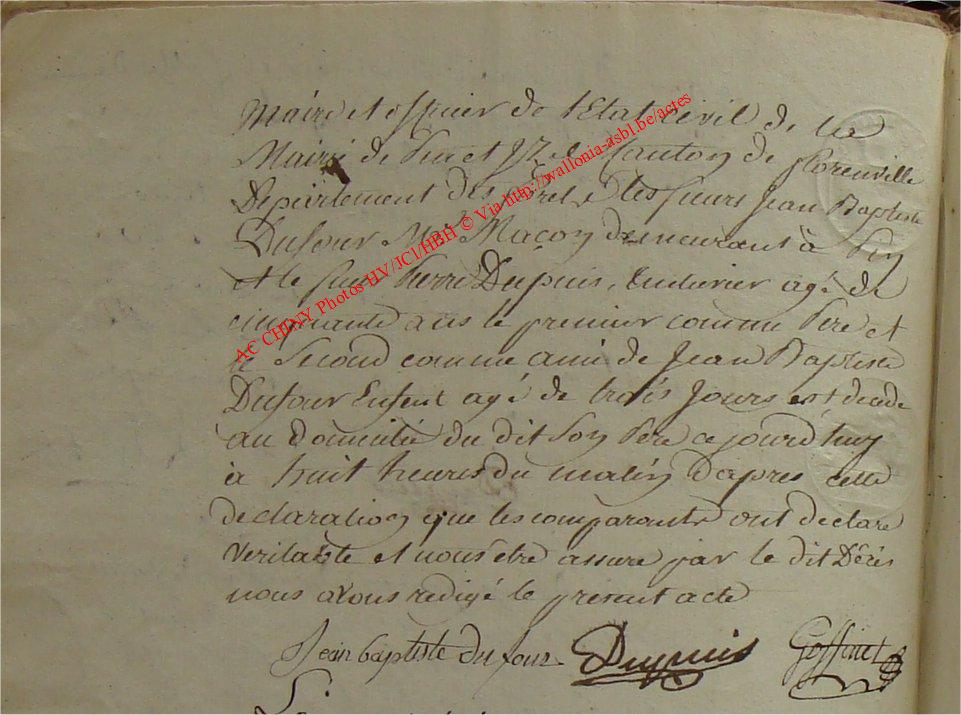 Maire et officier de l'Etat Civil de la
Mairie de Pin et Iz le Canton de florenville
Département des forets les sieurs Jean Baptiste
Dufour Maçon demeurant à Pin
et le sieur Pierre Dupuis, age de
cinquante ans le premier comme Pere et
le Second comme ami de Jean Baptiste
Dufour Enfent agé de trois Jours est decede
au Domicile du dit Son Pere ce jourd'huy
à huit heures du matin D'apres cette
declaration que les comparants ont declare
veritable et nous être assure par le dit Décès
nous avons redigé le present acte
Jean baptiste du four Dupuis Goffinet
AC CHINY Photos HV/JCl/HBH © Via http://wallonia-asbl.be/actes